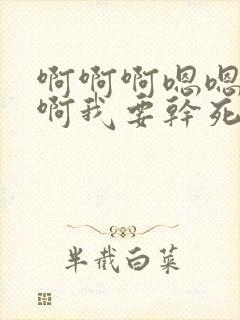 啊啊啊嗯嗯
啊我要幹死
半截白菜